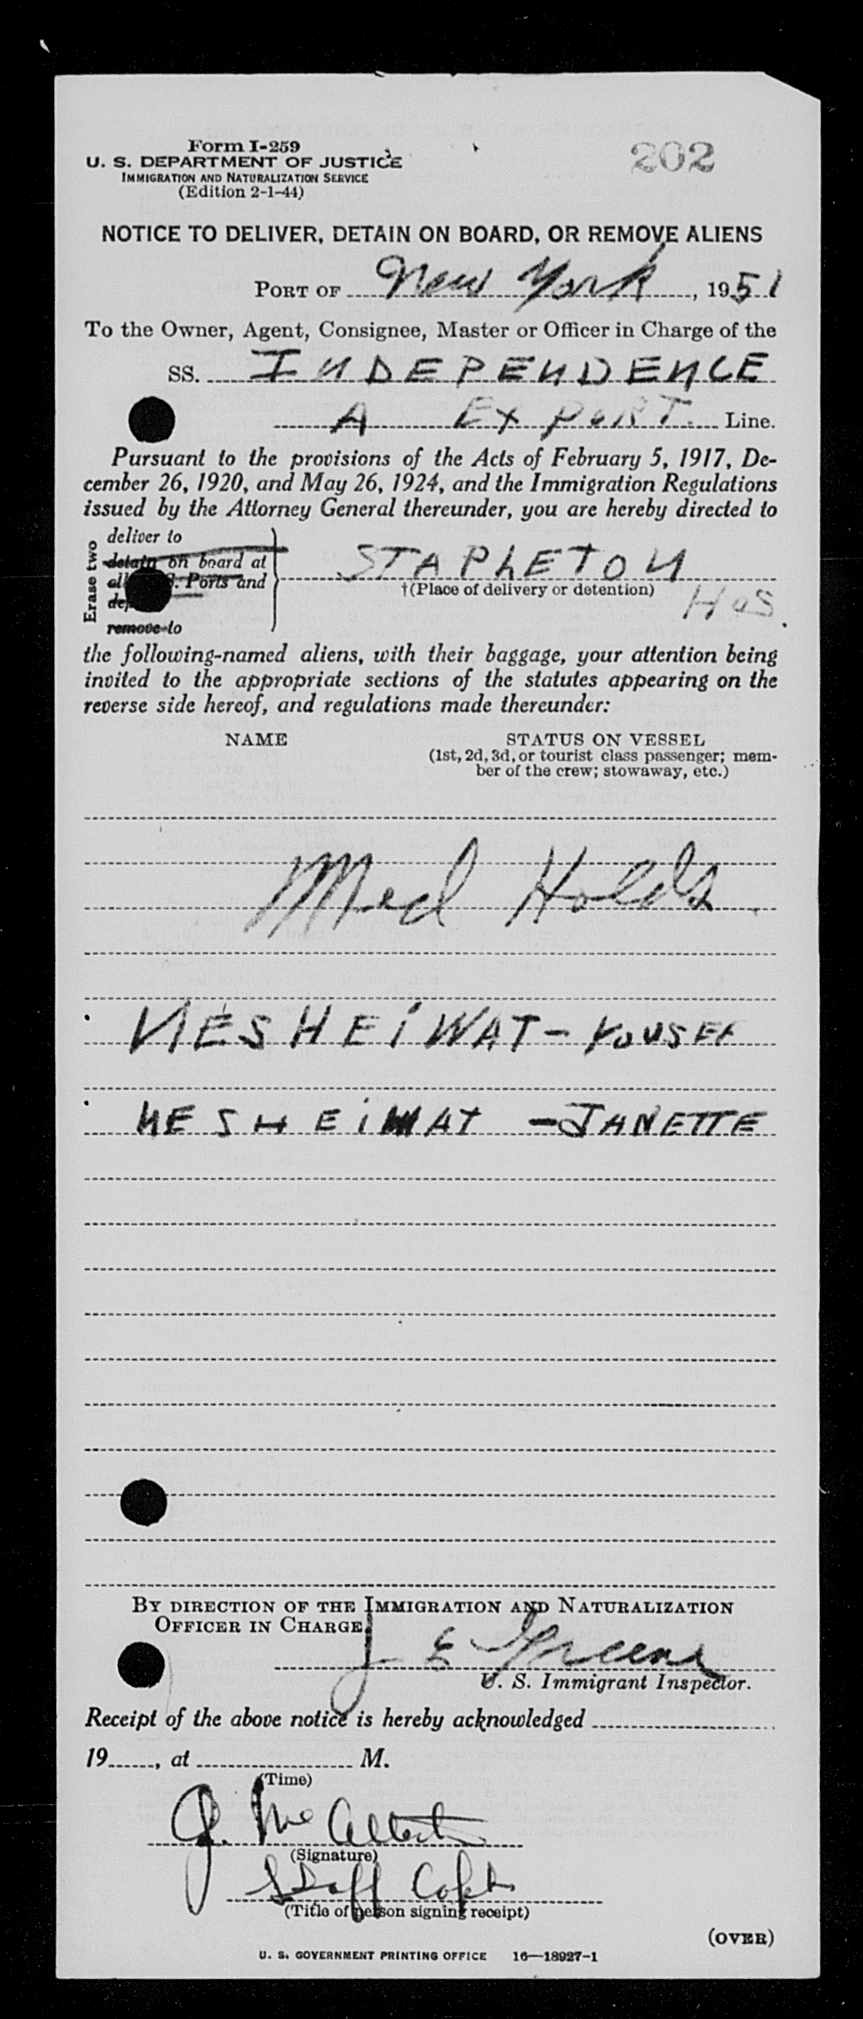 Form I-259
202
U. S. DEPARTMENT OF JUSTICE
IMMIGRATION AND NATURALIZATION SERVICE
(Edition 2-1-44)
NOTICE TO DELIVER, DETAIN ON BOARD, OR REMOVE ALIENS
PORT OF New York, 1951
To the Owner, Agent, Consignee, Master or Officer in Charge of the
SS. INDEPENDENCE
A EXPORT. Line.
Pursuant to the provisions of the Acts of February 5, 1917, De-
cember 26, 1920, and May 26, 1924, and the Immigration Regulations
issued by the Attorney General thereunder, you are hereby directed to
Erase two
deliver to
detain on board at
Ports and
remove to
STAPLETON
†(Place of delivery or detention)
Hos.
the following-named aliens, with their baggage, your attention being
invited to the appropriate sections of the statutes appearing on the
reverse side hereof, and regulations made thereunder:
NAME STATUS ON VESSEL
(1st, 2d, 3d, or tourist class passenger; mem-
ber of the crew; stowaway, etc.)
Med Holds
NESHEIWAT - YOUSEF
NESHEIWAT - JANETTE
BY DIRECTION OF THE IMMIGRATION AND NATURALIZATION
OFFICER IN CHARGE
J E Greene
U. S. Immigrant Inspector.
Receipt of the above notice is hereby acknowledged
19, at M.
(Time)
(Signature)
Staff Capt
(Title of person signing receipt)
(OVER)
U. S. GOVERNMENT PRINTING OFFICE 16—18927-1